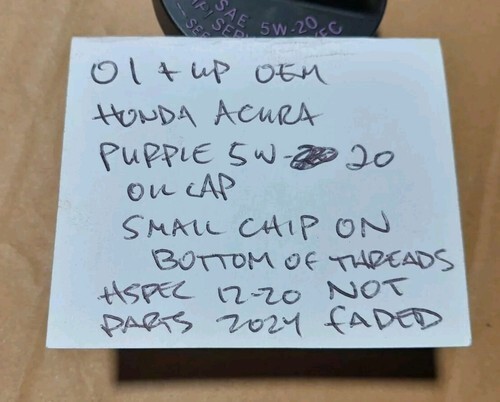 SAE 5W-20
01 + UP OEM
HONDA ACURA
PURPLE 5W- 20
OIL CAP
SMALL CHIP ON
BOTTOM OF THREADS
HSPEC 12-20 NOT
PARTS 2024 FADED